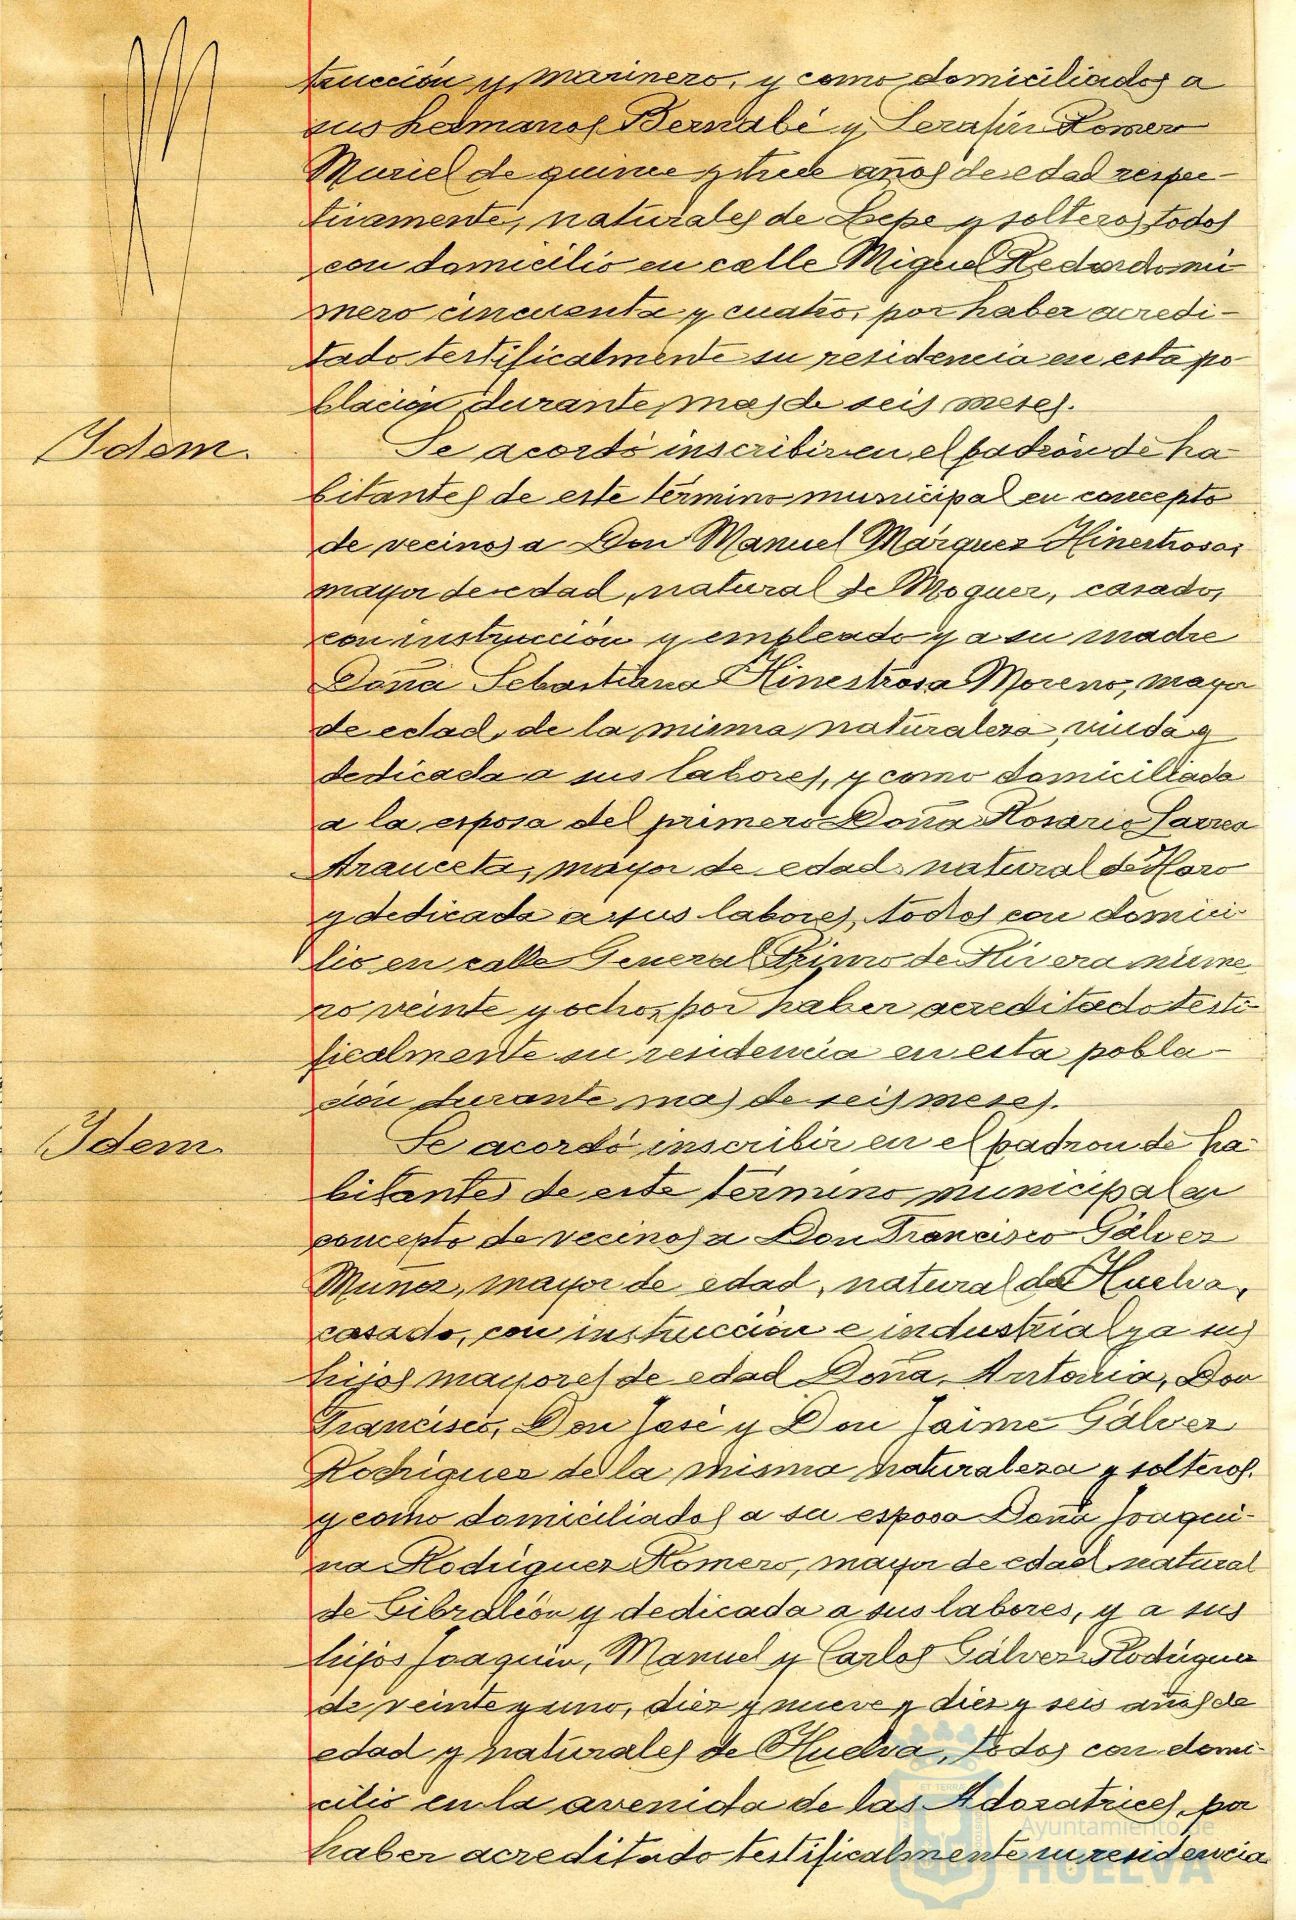 trucción y marinero, y como domiciliados a
sus hermanos Bernabé y Serafín Romero
Muriel de quince y trece años de edad respec-
tivamente, naturales de Lepe y solteros, todos
con domicilio en calle Miguel Redondo nú-
mero cincuenta y cuatro, por haber acredi-
tado testificalmente su residencia en esta po
blación durante mas de seis meses.
Ydem.
Se acordó inscribir en el padrón de ha-
bitantes de este término municipal en concepto
de vecinos a Don Manuel Márquez Hinestrosa,
mayor de edad, natural de Moguer, casado,
con instrucción y empleado y a su madre
Doña Sebastiana Hinestrosa Moreno, mayor
de edad, de la misma naturaleza, viuda y
dedicada a sus labores, y como domiciliada
a la esposa del primero Doña Rosario Larrea
Arauceta, mayor de edad, natural de Haro
y dedicada a sus labores, todos con domici-
lio en calle General Primo de Rivera núme
ro veinte y ocho, por haber acreditado testi-
ficalmente su residencia en esta pobla-
ción durante mas de seis meses.
Ydem.
Se acordó inscribir en el padron de ha-
bitantes de este término municipal en
concepto de vecinos a Don Francisco Gálvez
Muñoz, mayor de edad, natural de Huelva,
casado, con instrucción e industrial y a sus
hijos mayores de edad Doña, Antonia, Don
Francisco, Don José y Don Jaime Gálvez
Rodríguez de la misma naturaleza y solteros.
y como domiciliados a su esposa Doña Joaqui-
na Rodríguez Romero, mayor de edad, natural
de Gibraleón y dedicada a sus labores, y a sus
hijos Joaquín, Manuel y Carlos Gálvez Rodríguez
de veinte y uno, diez y nueve y diez y seis años de
edad y naturales de Huelva, todos con domi-
cilio en la avenida de las Adoratrices, por
haber acreditado testificalmente su residencia
Ayuntamiento de
HUELVA